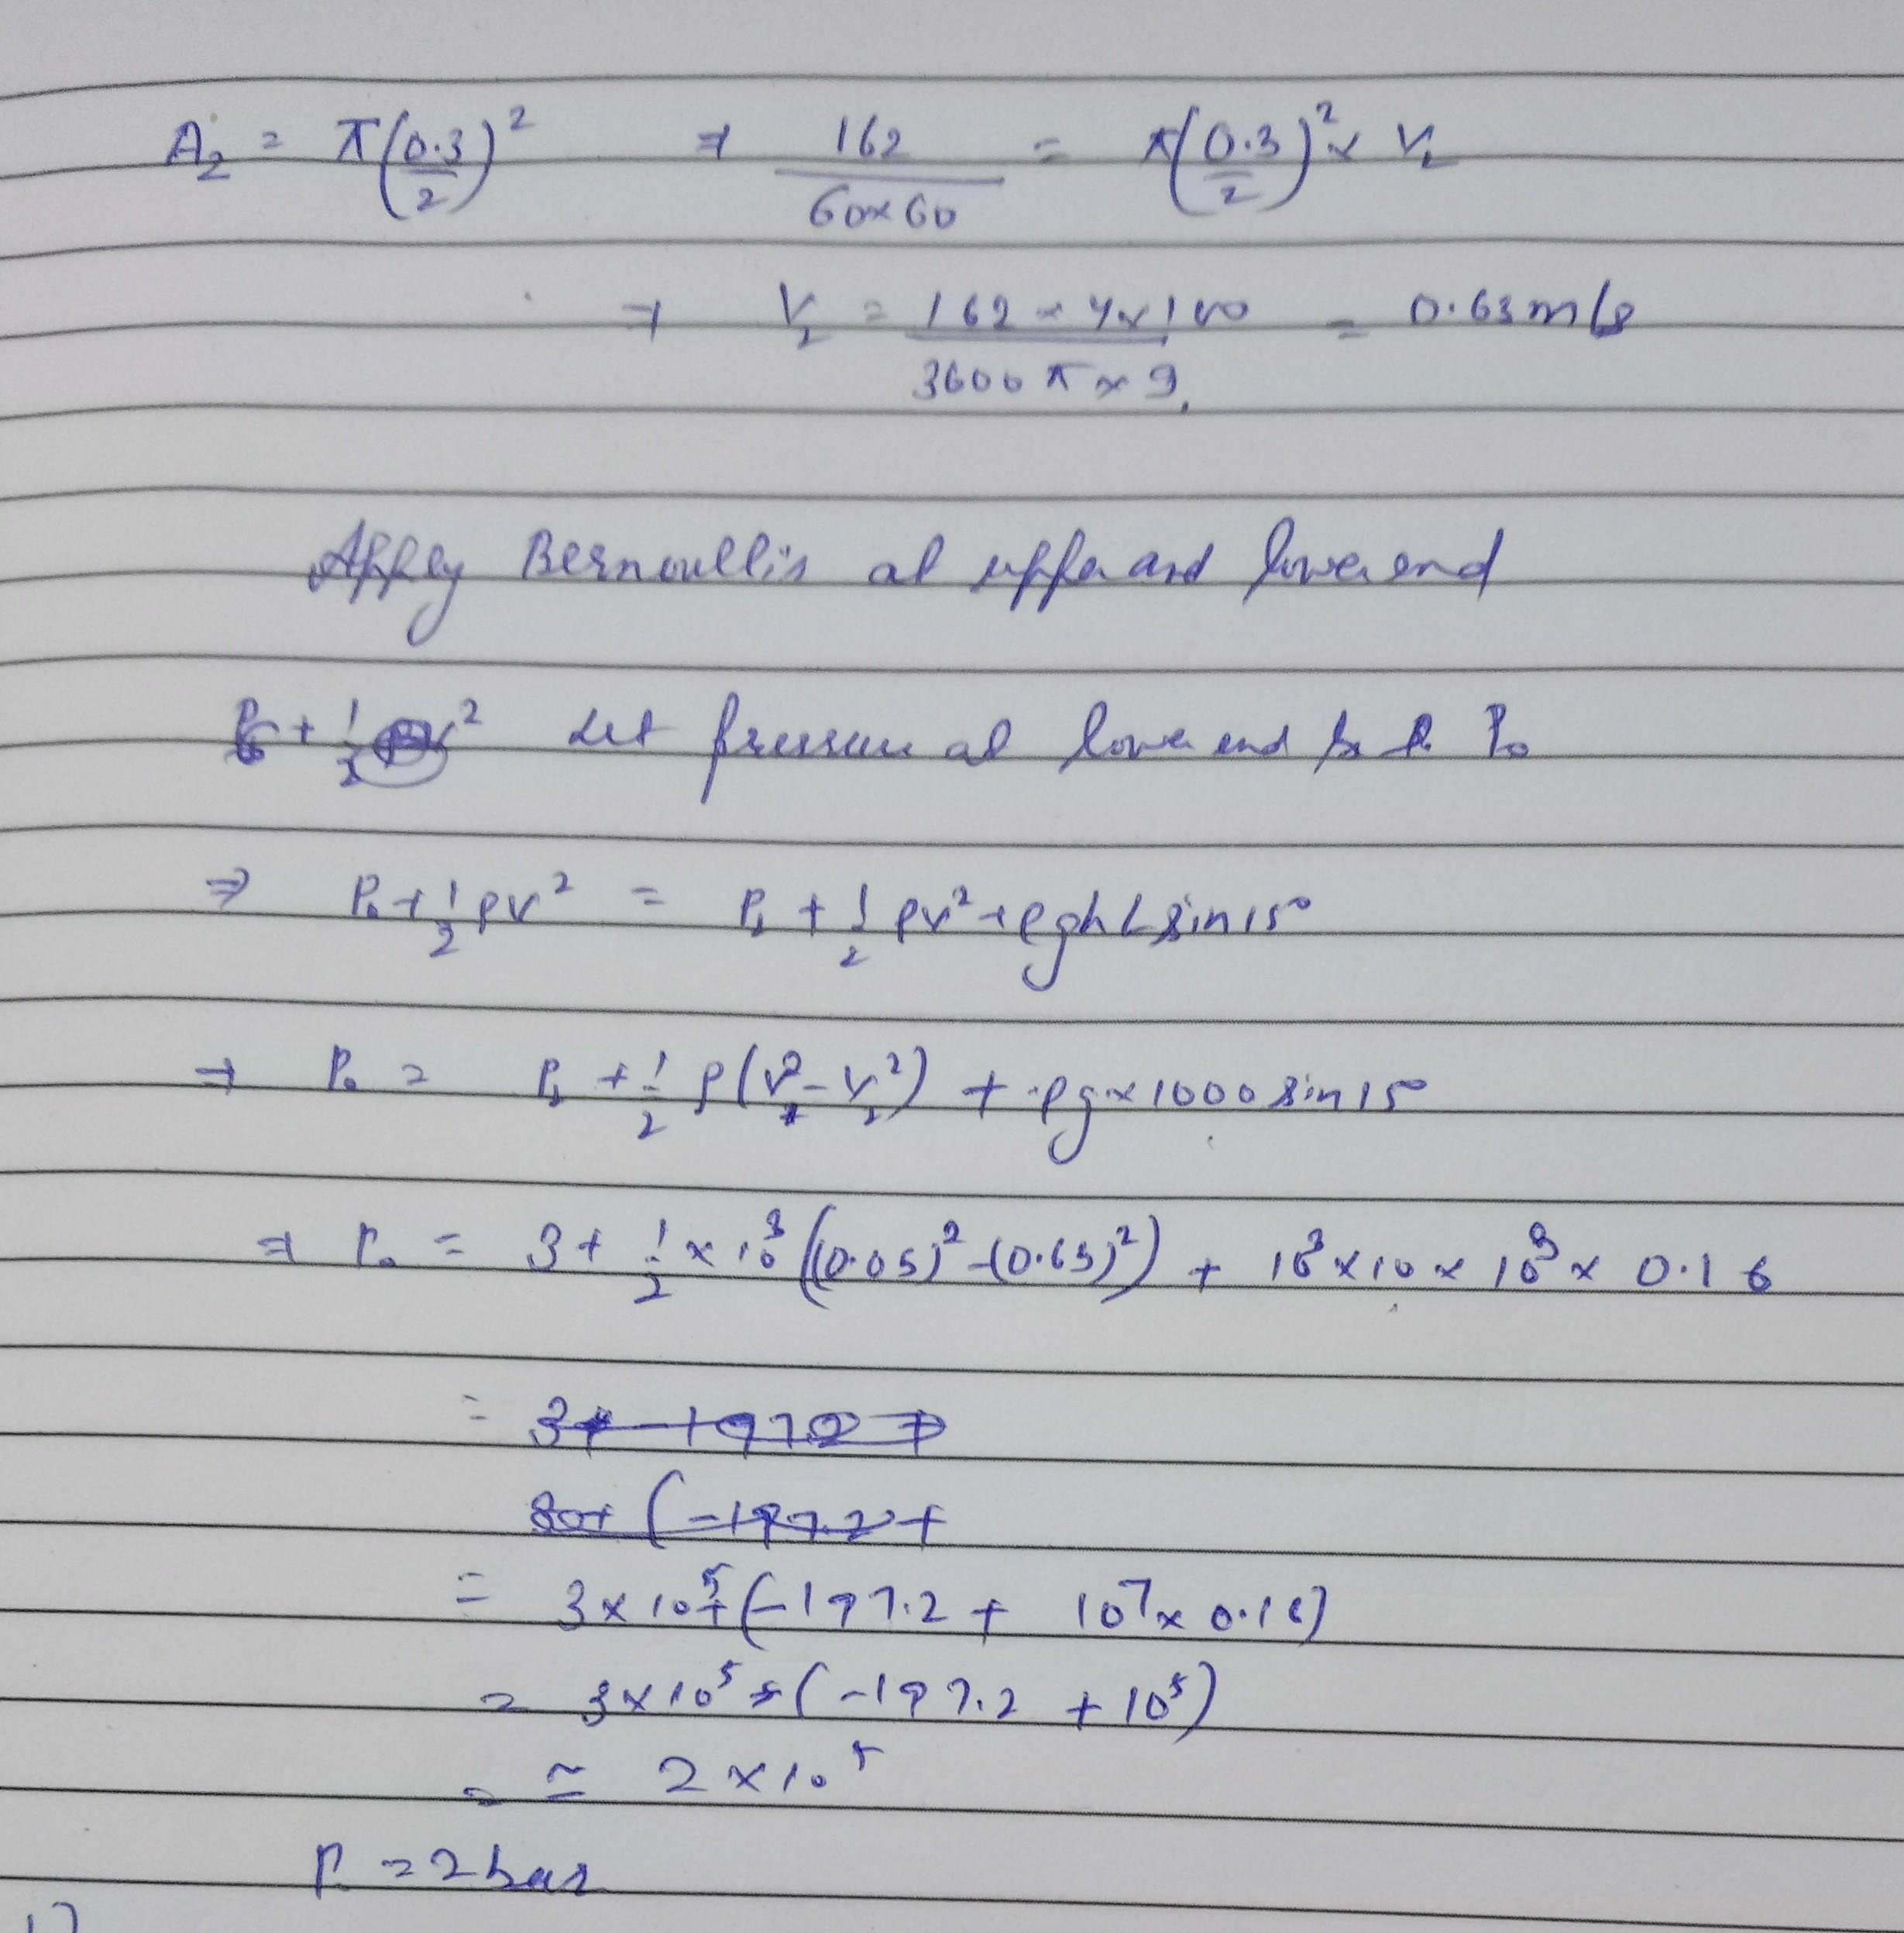 A₂ = π(0.3/2)² ⇒ 162/(60×60) = π(0.3/2)² × V₂
⇒ V₂ = (162 × 4×100)/(3600 π × 9) = 0.63 m/s
Apply Bernoulli's at upper and lower end
Let pressure at lower end be P₀
⇒ P₀ + 1/2 ρv² = P₂ + 1/2 ρv² + ρgh L sin 15°
⇒ P₀ = P₂ + 1/2 ρ(V² - V₂²) + ρg × 1000 sin 15°
⇒ P₀ = 3 + 1/2 × 10³ ((0.05)² - (0.63)²) + 10³ × 10 × 10³ × 0.16
= 3+ -1972
80+ (-197.2 +
= 3 × 10⁵ + (-197.2 + 10⁷ × 0.16)
= 3 × 10⁵ + (-197.2 + 10⁵)
= ≃ 2 × 10⁵
P = 2 bar